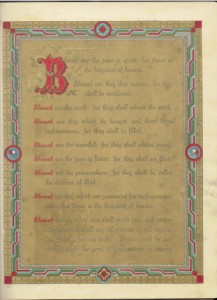 Blessed are the poor in spirit: for theirs is
the kingdom of heaven.
Blessed are they that mourn: for they
shall be comforted.
Blessed are the meek: for they shall inherit the earth.
Blessed are they which do hunger and thirst after
righteousness: for they shall be filled.
Blessed are the merciful: for they shall obtain mercy.
Blessed are the pure in heart: for they shall see God.
Blessed are the peacemakers: for they shall be called
the children of God.
Blessed are they which are persecuted for righteousness
sake: for theirs is the kingdom of heaven.
Blessed are ye when men shall